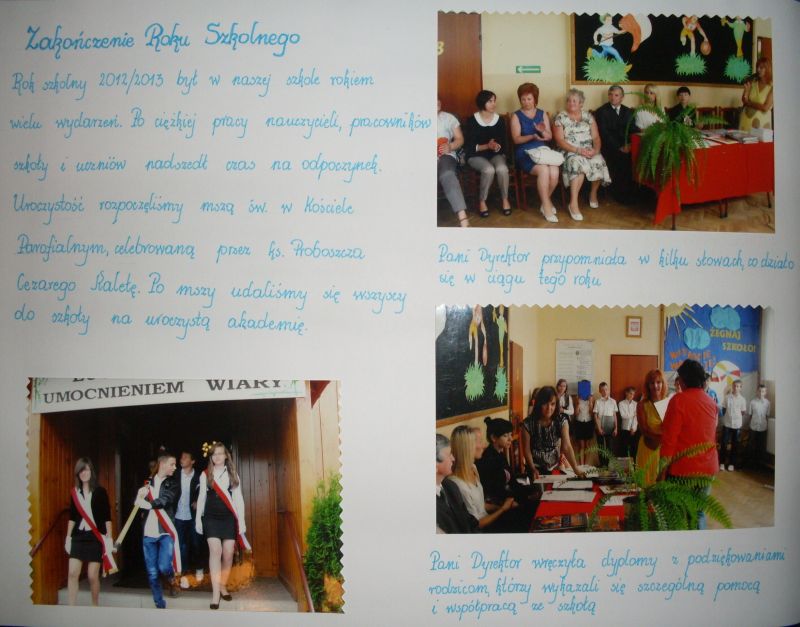 Zakończenie Roku Szkolnego
Rok szkolny 2012/2013 był w naszej szkole rokiem
wielu wydarzeń. Po ciężkiej pracy nauczycieli, pracowników
szkoły i uczniów nadszedł czas na odpoczynek.
Uroczystość rozpoczęliśmy mszą św. w Kościele
Parafialnym, celebrowaną przez ks. Proboszcza
Cezarego Kaletę. Po mszy udaliśmy się wszyscy
do szkoły na uroczystą akademię.
UMOCNIENIEM WIARY
Pani Dyrektor przypomniała w kilku słowach, co działo
się w ciągu tego roku
ŻEGNAJ
SZKOŁO!
Pani Dyrektor wręczyła dyplomy z podziękowaniami
rodzicom, którzy wykazali się szczególną pomocą
i współpracą ze szkołą